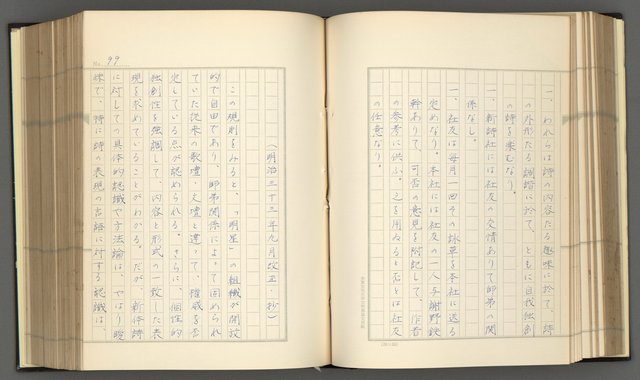 一、われらは詩の内容たる趣味に於て、詩
の外形たる調諧に於て、ともに自我独創
の詩を楽むなり。
一、新詩社には社友の交情ありて師弟の関
係なし。
一、社友は毎月一回その詠草を本社に送る
定めなり。本社には社友の一人与謝野鉄
幹ありて、可否の意見を附記して、作者
の参考に供ふ。之を用ゐると否とは社友
の任意なり。
（明治三十三年九月改正・抄）
この規則をみると、「明星」の組織が開放
的で自由であり、師弟関係によって固められ
ていた従来の歌壇・文壇と違って、権威を否
定している点が認められる。さらに、個性的
独創性を強調して、内容と形式の一致した表
現を求めていることがわかる。だが、新体詩
に対しての具体的認識や方法論は、やはり曖
昧で、特に詩の表現の言語に対する認識は、
No. 99